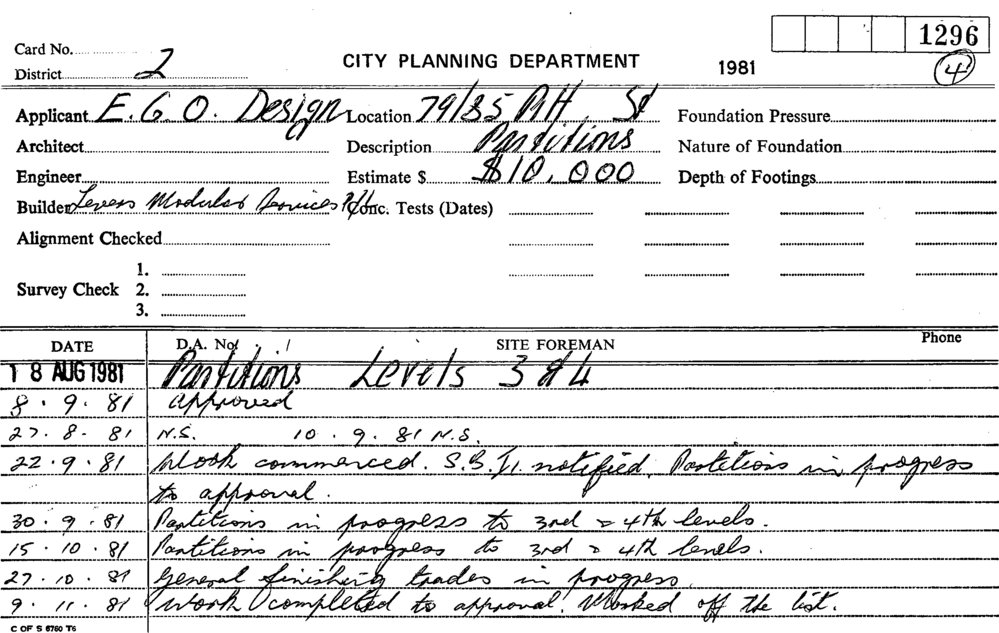 1296
Card No.
District 2
CITY PLANNING DEPARTMENT
1981
4
Applicant E.G.O. Design Location 79/85 Pitt St Foundation Pressure
Architect Description Partitions Nature of Foundation
Engineer Estimate $ $10,000 Depth of Footings
Builder Levers Modular Services P/L Conc. Tests (Dates)
Alignment Checked
1.
Survey Check 2.
3.
DATE D.A. No. SITE FOREMAN Phone
18 AUG 1981 Partitions Levels 3 & 4
8.9.81 Approved
27.8.81 N.S. 10.9.81 N.S.
22.9.81 Work commenced. S.B.I. notified. Partitions in progress
to approval.
30.9.81 Partitions in progress to 3rd & 4th levels.
15.10.81 Partitions in progress to 3rd & 4th levels.
27.10.81 General finishing trades in progress.
9.11.81 Work completed to approval. Marked off the list.
C OF S 6760 T6